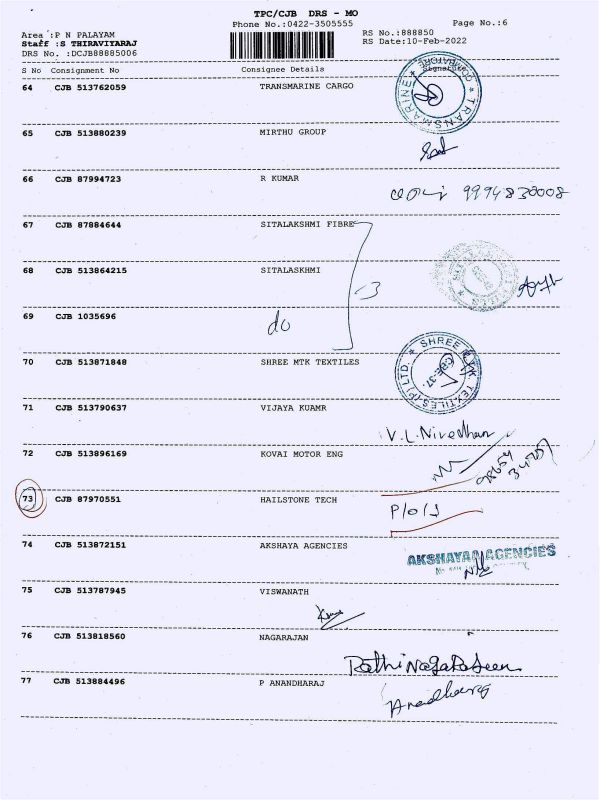 TPC/CJB DRS - MO
Phone No.:0422-3505555
Page No.:6
Area :P N PALAYAM
RS No.:888850
Staff :S THIRAVIYARAJ
RS Date:10-Feb-2022
DRS No. :DCJB88885006
S No Consignment No Consignee Details Signature
64 CJB 513762059 TRANSMARINE CARGO
TRANSMARINE COIMBATORE
65 CJB 513880239 MIRTHU GROUP
66 CJB 87994723 R KUMAR
9994830008
67 CJB 87884644 SITALAKSHMI FIBRE
68 CJB 513864215 SITALASKHMI
3
69 CJB 1035696 do
70 CJB 513871848 SHREE MTK TEXTILES
SHREE MTK TEXTILES (P) LTD. CBE-37.
71 CJB 513790637 VIJAYA KUAMR
V.L. Nivedhan
72 CJB 513896169 KOVAI MOTOR ENG
73 CJB 87970551 HAILSTONE TECH
P/O/S
74 CJB 513872151 AKSHAYA AGENCIES
AKSHAYAA AGENCIES
75 CJB 513787945 VISWANATH
76 CJB 513818560 NAGARAJAN
77 CJB 513884496 P ANANDHARAJ
Anandharaj